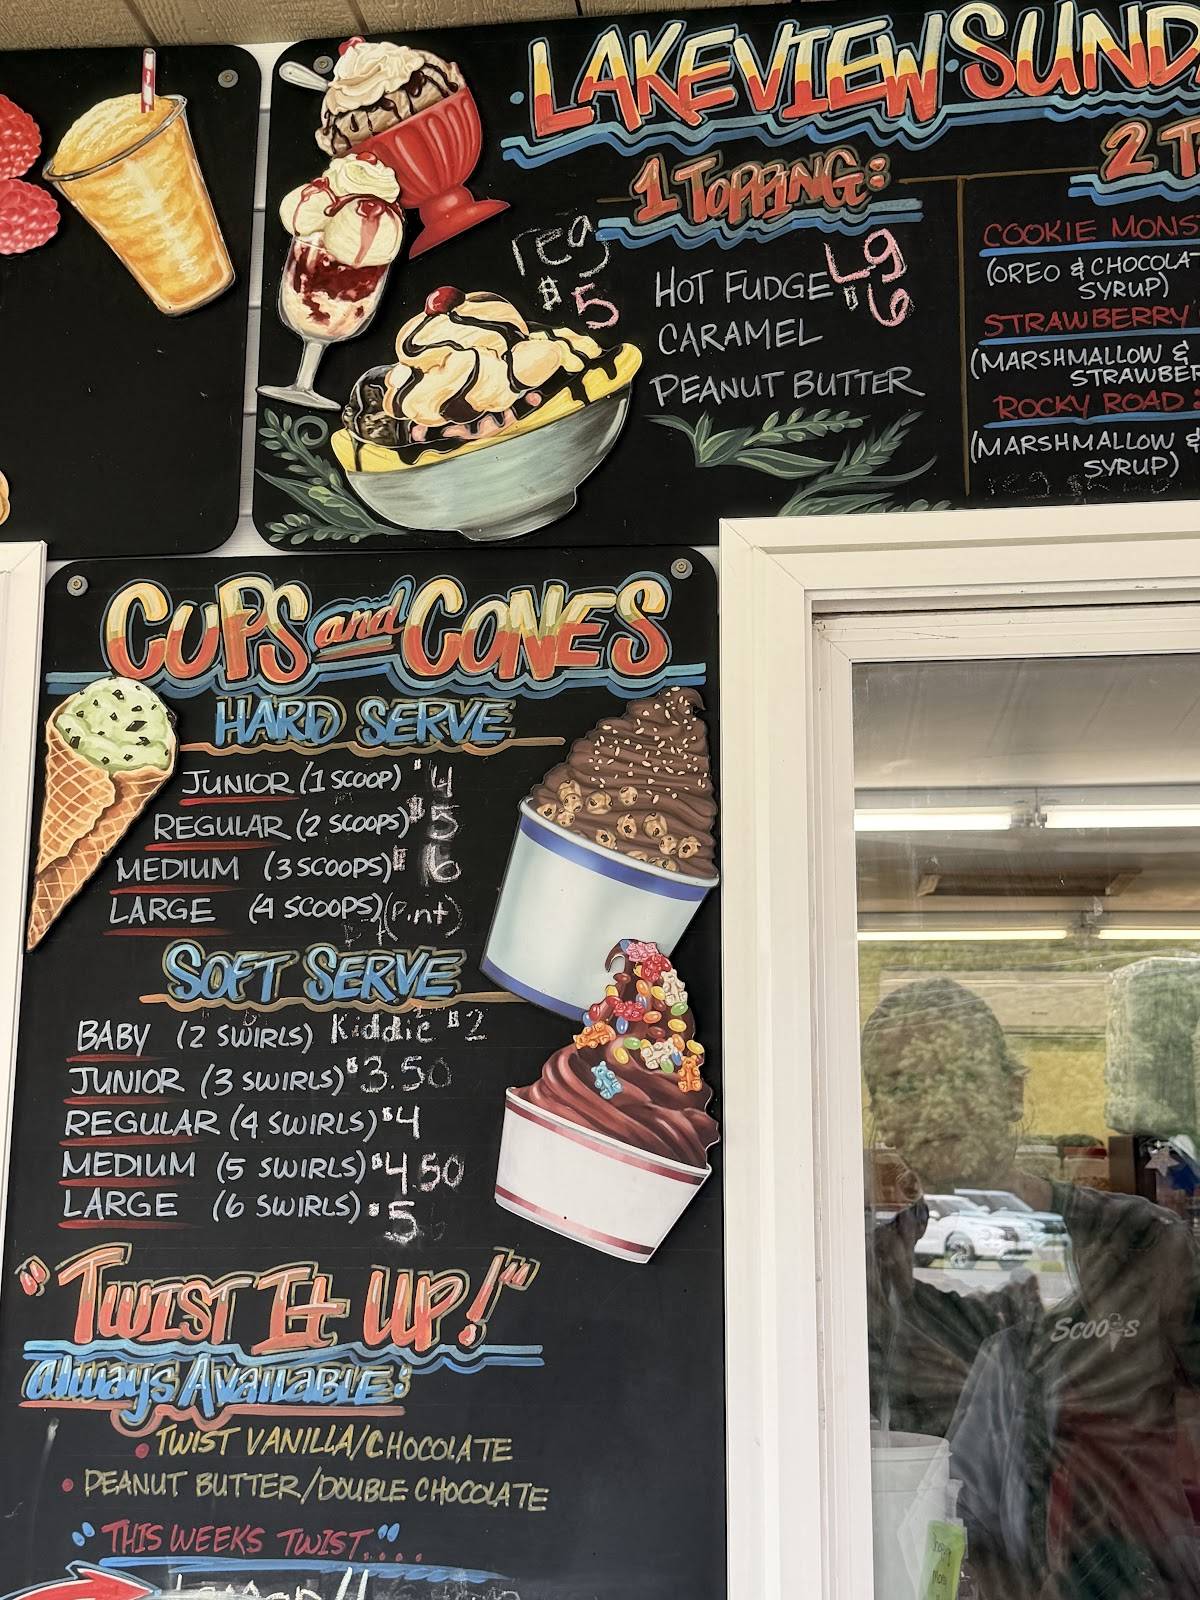 LAKEVIEW SUND
1 TOPPING:
reg $5
Lg $6
HOT FUDGE
CARAMEL
PEANUT BUTTER
2 T
COOKIE MONS
(OREO & CHOCOLAT
SYRUP)
STRAWBERRY
(MARSHMALLOW &
STRAWBER
ROCKY ROAD :
(MARSHMALLOW &
SYRUP)
CUPS and CONES
HARD SERVE
JUNIOR (1 SCOOP) $4
REGULAR (2 SCOOPS) $5
MEDIUM (3 SCOOPS) $6
LARGE (4 SCOOPS) (Pint)
SOFT SERVE
BABY (2 SWIRLS) Kiddie $2
JUNIOR (3 SWIRLS) $3.50
REGULAR (4 SWIRLS) $4
MEDIUM (5 SWIRLS) $4.50
LARGE (6 SWIRLS) $5
"TWIST It UP!"
always AVAILABLE:
• TWIST VANILLA/CHOCOLATE
• PEANUT BUTTER/DOUBLE CHOCOLATE
"THIS WEEKS TWIST...."
SCOOPS